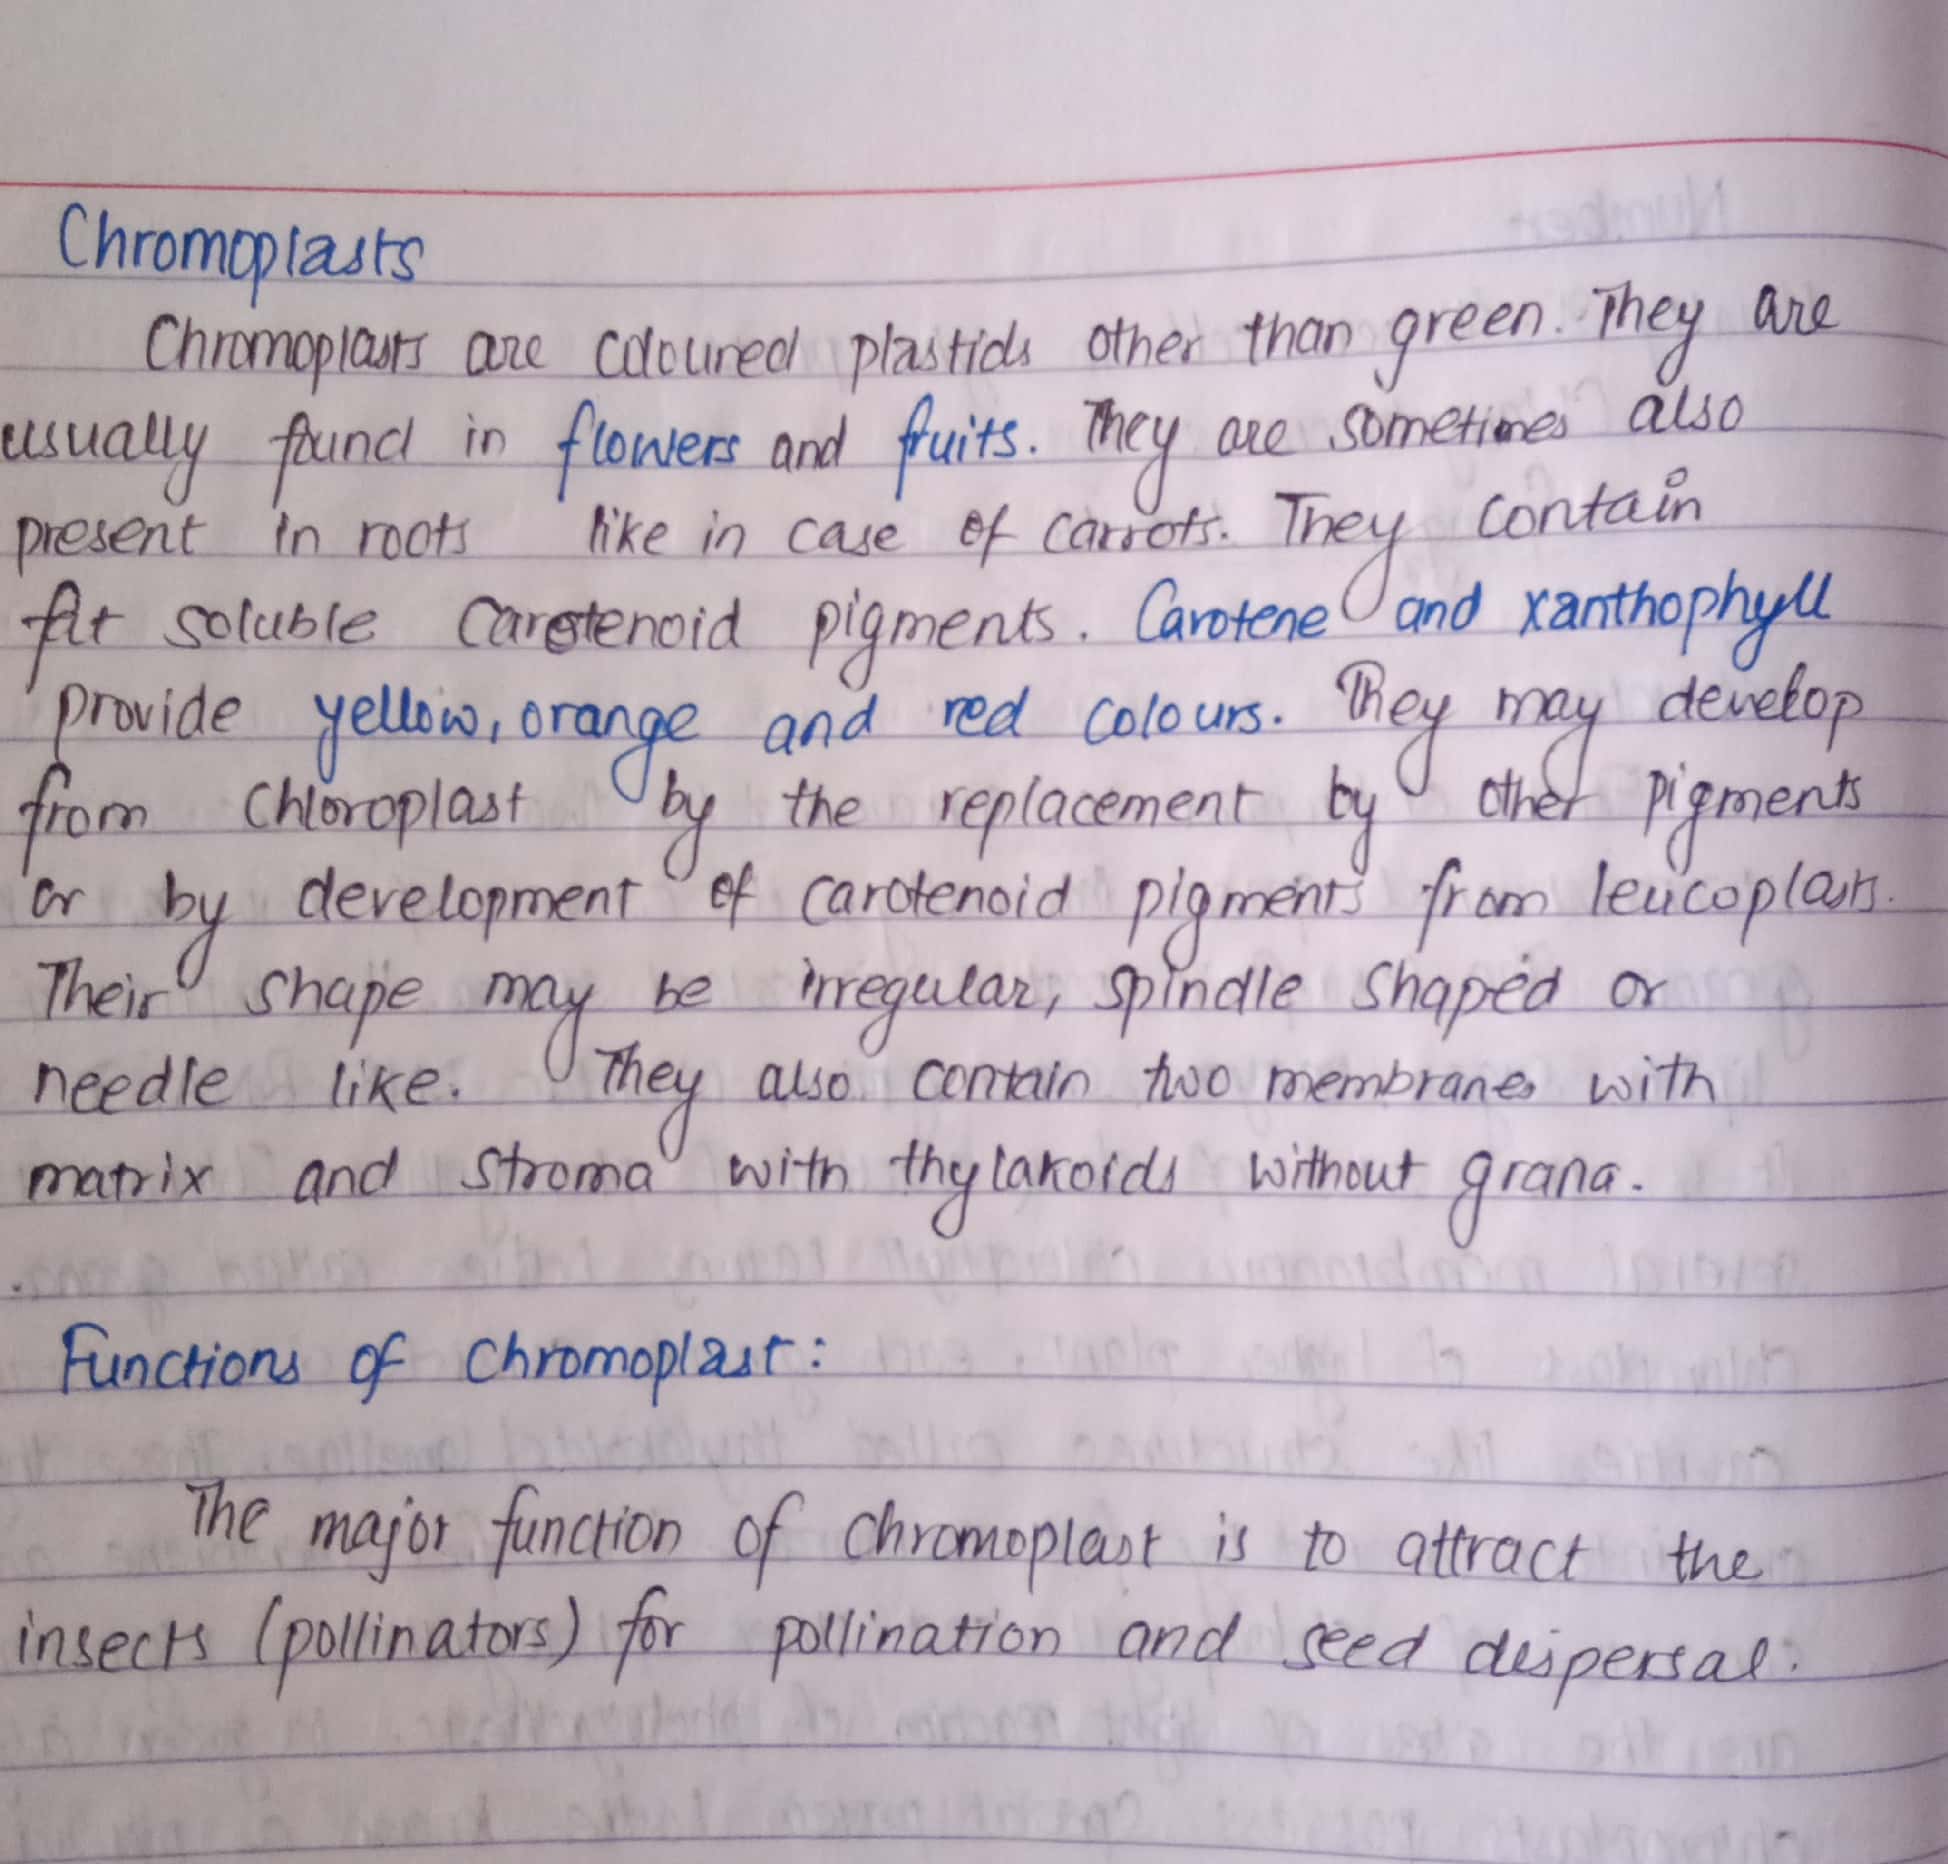 Chromoplasts
Chromoplasts are coloured plastids other than green. They are
usually found in flowers and fruits. They are sometimes also
present in roots like in case of carrots. They contain
fat soluble Carotenoid pigments. Carotene and xanthophyll
provide yellow, orange and red colours. They may develop
from Chloroplast by the replacement by other pigments
or by development of carotenoid pigments from leucoplasts.
Their shape may be irregular, spindle shaped or
needle like. They also contain two membranes with
matrix and stroma with thylakoids without grana.
Functions of Chromoplast:
The major function of chromoplast is to attract the
insects (pollinators) for pollination and seed dispersal.